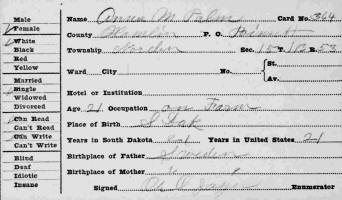 Male
Female
White
Black
Red
Yellow
Married
Single
Widowed
Divorced
Can Read
Can't Read
Can Write
Can't Write
Blind
Deaf
Idiotic
Insane
Name Anna M Palm Card No. 364
County Hamlin P. O.
Township Norden Sec. 15 T. 113 R. 53
Ward City No. St. Av.
Hotel or Institution
Age 21 Occupation on Farm
Place of Birth S Dak
Years in South Dakota 21 Years in United States 21
Birthplace of Father Sweden
Birthplace of Mother " "
Signed Enumerator